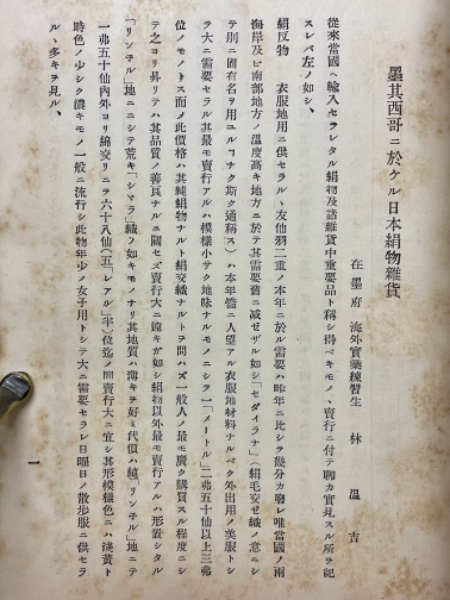 墨其西哥ニ於ケル日本絹物雜貨
在墨府 海外實業練習生 林 溫吉
從來當國ヘ輸入セラレタル絹物及諸雜貨中重要品ト稱シ得ベキモノ、賣行ニ付テ聊カ實見スル所ヲ記
スレバ左ノ如シ、
絹反物 衣服地用ニ供セラルヽ友仙羽二重ノ本年ニ於ル需要ハ昨年ニ比シテ幾分カ廢レ唯當國ノ兩
海岸及ビ南部地方ノ溫度高キ地方ニ於テ其需要舊ニ減セザル如シ「セダイラナ」(絹毛交セ織ノ意ニシ
テ別ニ固有名ヲ用ユルヿナク斯ク通稱ス)ハ本年\U6190ニ人望アル衣服地材料ナルベク外出用ノ美服トシ
ラ大ニ需要セラル其最モ賣行アルハ模樣小サク地味ナルモノニシテ一「メートル」二弗五十仙以上三弗
位ノモノトス而メ此價格ハ其純絹物ナルト絹交織ナルトヲ問ハズ一般人ノ最モ廣ク購買スル程度ニシ
テ之ヨリ昇リテハ其品質ノ善良ナルニ關セズ賣行大ニ遠キガ如シ絹物以外最モ賣行アルハ形置シタル
「リンネル」地ニシテ荒キ「シマラ」織ノ如キモノナリ其地質ハ薄キヲ好ミ代價ハ純「リンネル」地ニテ
一弗五十仙內外ヨリ綿交リニテ六十八仙(五「レアル」半)位迄ノ間賣行大ニ宜シ其形模樣色ニハ淺黃ト
時色ノ少シク濃キモノ一般ニ流行シ此物年少ノ女子用トシテ大ニ需要セラレ日曜日ノ散步服ニ供セラ
ルヽ多キヲ見ル、
一